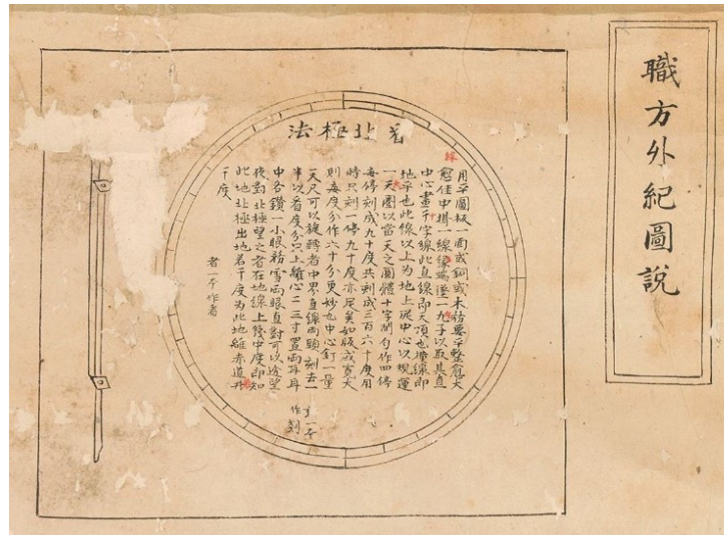 職方外紀圖說
看北極法
用平圓板一面或銅或木務要平整愈大
愈佳中掛一線線端墜一丸子以取其直
中心畫十字線此直線即天頂也橫線即
地平也此線以上為地上從中心以規運
一大圈以當天之圓體十字間勻作四停
每停刻成九十度共刻成三百六十度用
時只刻一停九十度亦足矣如版或寬大
則每度分作六十分更妙也中心釘一量
天尺可以旋轉者中界直線兩頭刻去一
半以看度分尺上離心二三寸置兩耳耳
中各鑽一小眼務兩眼直對可以透望
夜對北極望之看在地線上幾十度即知
此地北極出地若干度為此地離赤道若
干度